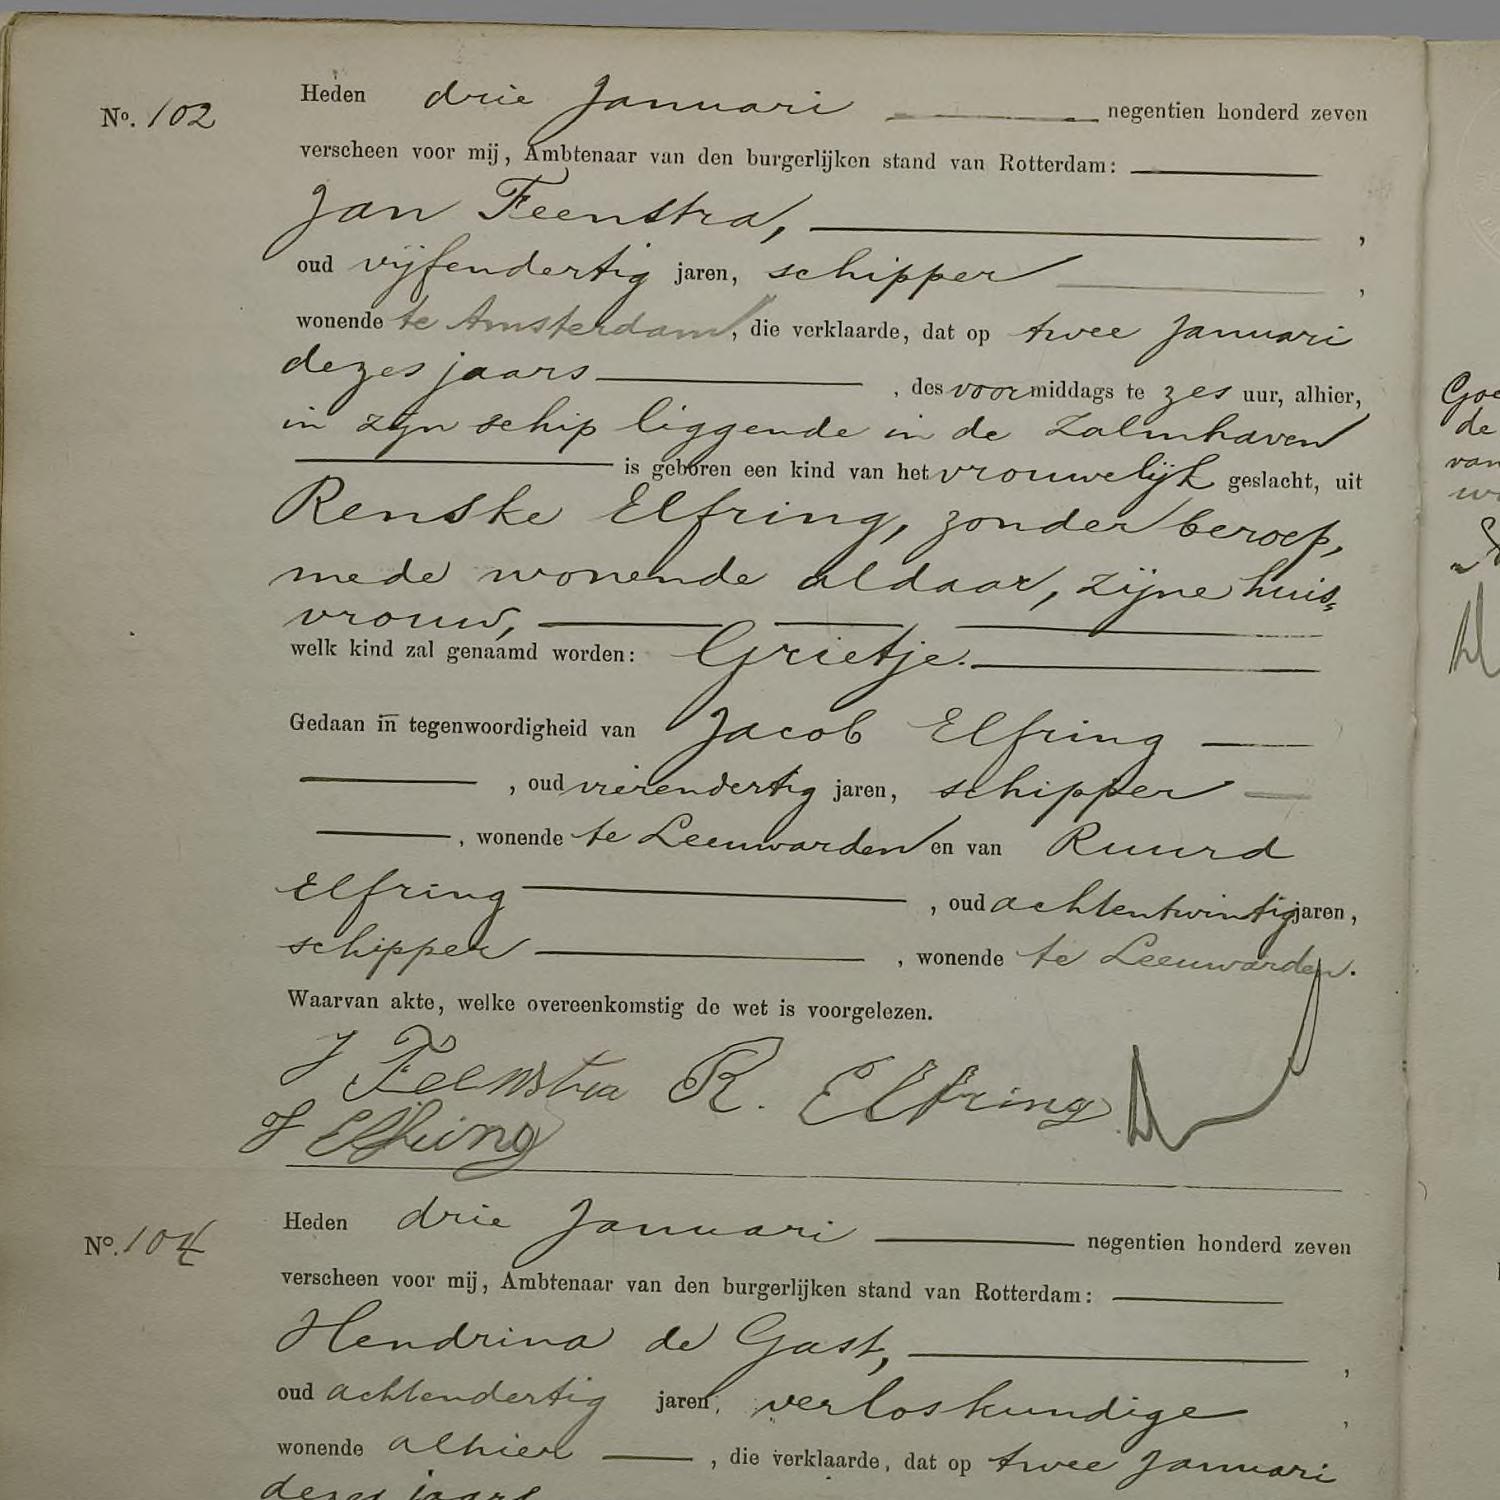 Nº. 102
Heden drie Januari negentien honderd zeven
verscheen voor mij, Ambtenaar van den burgerlijken stand van Rotterdam:
Jan Feenstra, ,
oud vijfendertig jaren, schipper ,
wonende te Amsterdam, die verklaarde, dat op twee Januari
dezes jaars , des voormiddags te zes uur, alhier,
in zijn schip liggende in de Zalmhaven
is geboren een kind van het vrouwelijk geslacht, uit
Renske Elfring, zonder beroep,
mede wonende aldaar, zijne huis-
vrouw,
welk kind zal genaamd worden: Grietje.
Gedaan in tegenwoordigheid van Jacob Elfring
, oud vierendertig jaren, schipper
, wonende te Leeuwarden en van Ruurd
Elfring , oud achtentwintig jaren,
schipper , wonende te Leeuwarden.
Waarvan akte, welke overeenkomstig de wet is voorgelezen.
J Feenstra R. Elfring
J Elfring
Nº. 104
Heden drie Januari negentien honderd zeven
verscheen voor mij, Ambtenaar van den burgerlijken stand van Rotterdam:
Hendrina de Gast, ,
oud achtendertig jaren, verloskundige ,
wonende alhier , die verklaarde, dat op twee Januari
dezes jaars
Goe
de
van